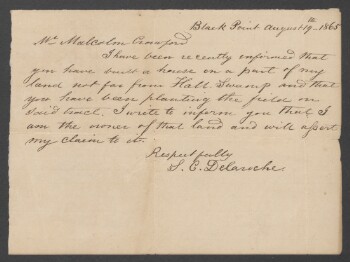 Black Point August 19th 1865
Mr Malcolm Crawford
I have been recently informed that
you have built a house on a part of my
land not far from Hall Swamp and that
you have been planting the field on
said tract. I write to inform you that I
am the owner of that land and will assert
my claim to it.
Respectfully
S. E. Delaroche.